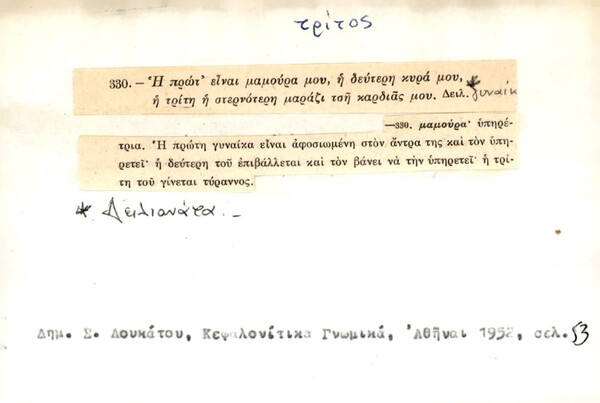 τρίτος
330. — Ἡ πρώτ' εἶναι μαμούρα μου, ἡ δεύτερη κυρά μου,
ἡ τρίτη ἡ στερνότερη μαράζι τσῆ καρδιᾶς μου. Δειλ. * γυναίκ
—330. μαμούρα· ὑπηρέ-
τρια. Ἡ πρώτη γυναίκα εἶναι ἀφοσιωμένη στὸν ἄντρα της καὶ τὸν ὑπη-
ρετεῖ· ἡ δεύτερη τοῦ ἐπιβάλλεται καὶ τὸν βάνει νὰ τὴν ὑπηρετεῖ· ἡ τρί-
τη τοῦ γίνεται τύραννος.
* Δειλιανάτα. –
Δημ. Σ. Λουκάτου, Κεφαλονίτικα Γνωμικά, Ἀθῆναι 1952, σελ. 53